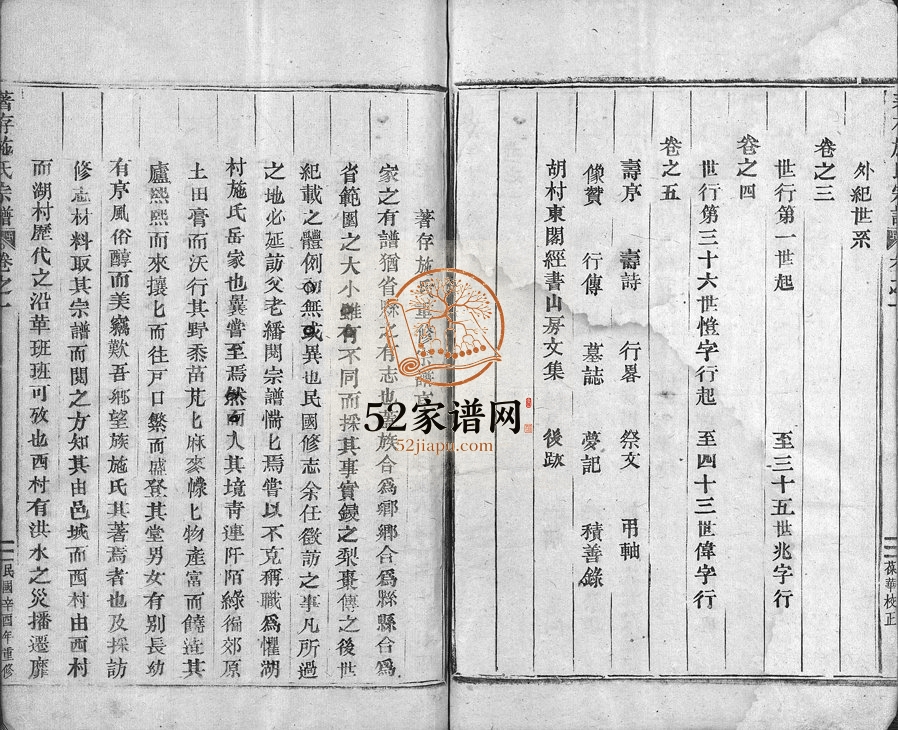 外紀世系
卷之三
世行第一世起 至三十五世兆字行
卷之四
世行第三十六世憕字行起 至四十三世偉字行
卷之五
壽序 壽詩 行畧 祭文 弔軸
像贊 行傳 墓誌 夢記 積善錄
胡村東閣經書山房文集 後跋
葆華校正
著存施氏重修宗譜
家之有譜猶省縣之有志也蓋族合爲鄉鄉合爲縣縣合爲
省範圍之大小雖有不同而採其事實鋟之梨棗傳之後世
紀載之體例初無或異也民國修志余任徵訪之事凡所過
之地必延訪父老繙閱宗譜惴匕焉嘗以不克稱職爲懼湖
村施氏岳家也曩嘗至焉然而入其境靑連阡陌綠徧郊原
土田膏而沃行其野黍苗芃匕麻麥幪匕物產富而饒造其
廬熙熙而來攘匕而往戶口繁而盛登其堂男女有別長幼
有序風俗醇而美竊歎吾鄉望族施氏其著焉者也及採訪
修志材料取其宗譜而閱之方知其由邑城而酉村由西村
而湖村歷代之沿革班班可攷也西村有洪水之災播遷靡
著存施氏宗譜 卷之一
民國辛酉年重修
52家谱网
52jiapu.com